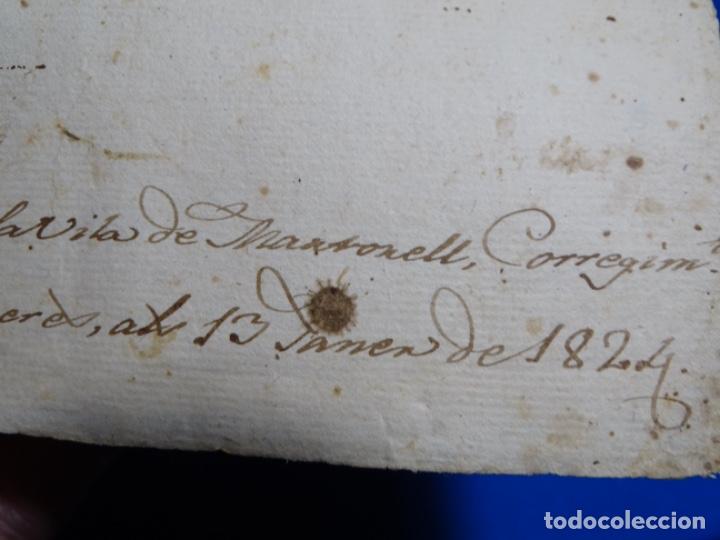 la Vila de Martorell, Corregim.t
eres, als 13 Janer de 1824.
todocoleccion
todocoleccion.net